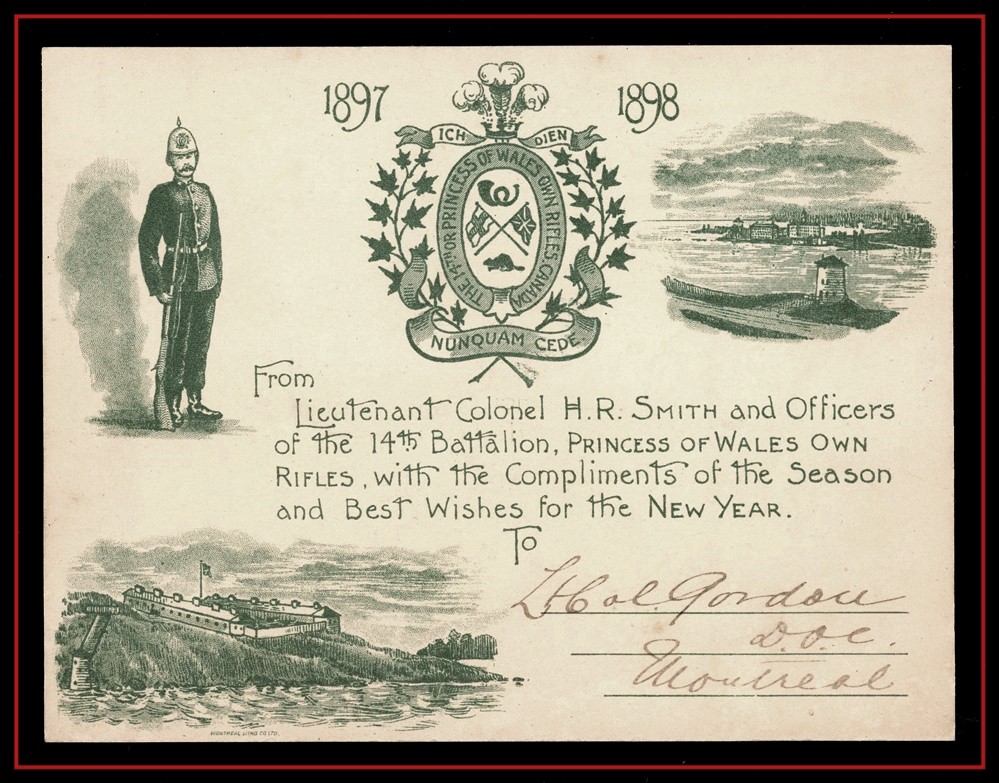 1897
1898
ICH DIEN
THE 14TH OR PRINCESS OF WALES OWN RIFLES, CANADA
NUNQUAM CEDE
From
Lieutenant Colonel H. R. SMITH and Officers
of the 14th Battalion, PRINCESS OF WALES OWN
RIFLES, with the Compliments of the Season
and Best Wishes for the NEW YEAR.
To
Lt Col. Gordon
D.O.C.
Montreal
MONTREAL LITHO CO LTD.